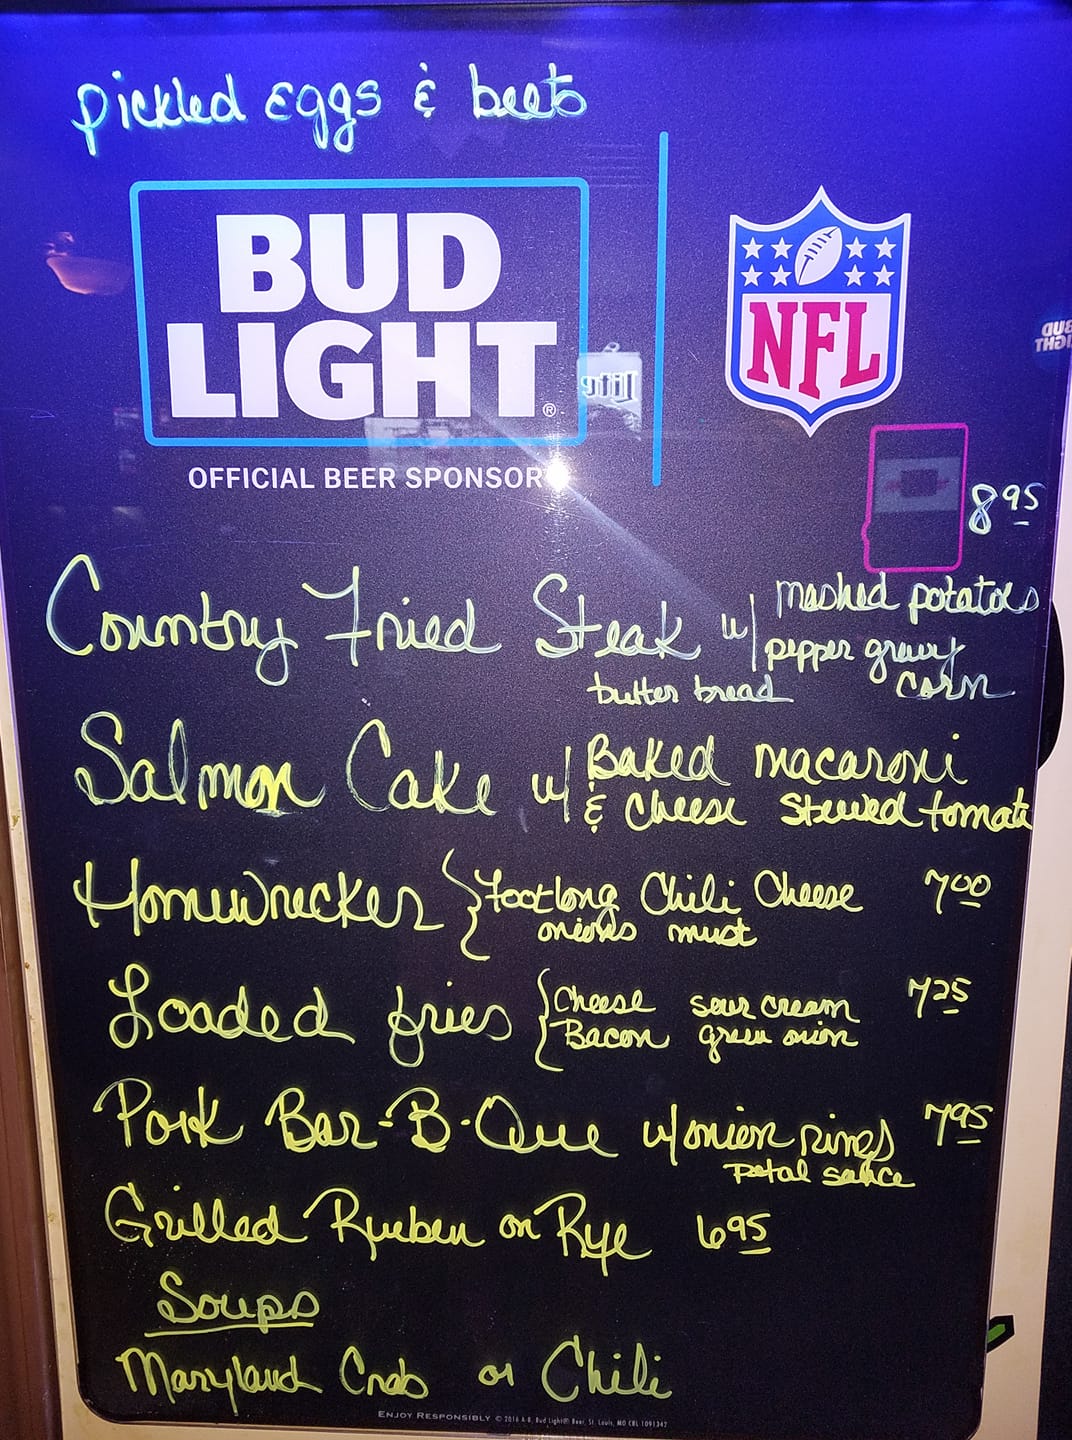 pickled Eggs & beets
BUD
LIGHT®
NFL
OFFICIAL BEER SPONSOR
8 95
Country Fried Steak w/ mashed potatoes
pepper gravy
butter bread corn
Salmon Cake w/ Baked macaroni
& Cheese stewed tomato
Homewrecker { Footlong Chili Cheese 7 00
onions must
Loaded fries { Cheese sour cream 7 25
Bacon green onion
Pork Bar-B-Que w/ onion rings 7 95
petal sauce
Grilled Rueben on Rye 6 95
Soups
Maryland Crab or Chili
ENJOY RESPONSIBLY © 2016 A-B, Bud Light® Beer, St. Louis, MO CBL 1091347